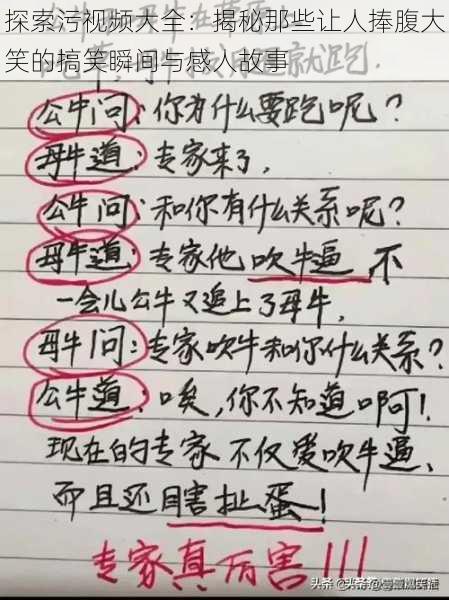 探索污视频大全：揭秘那些让人捧腹大
笑的搞笑瞬间与感人故事
公牛问：你为什么要跑呢？
母牛道：专家来了，
公牛问：和你有什么关系呢？
母牛道：专家他吹牛逼 不
一会儿公牛又追上了母牛，
母牛问：专家吹牛和你什么关系？
公牛道：唉，你不知道啊！
现在的专家不仅爱吹牛逼、
而且还瞎扯蛋！
专家真厉害!!!
头条@